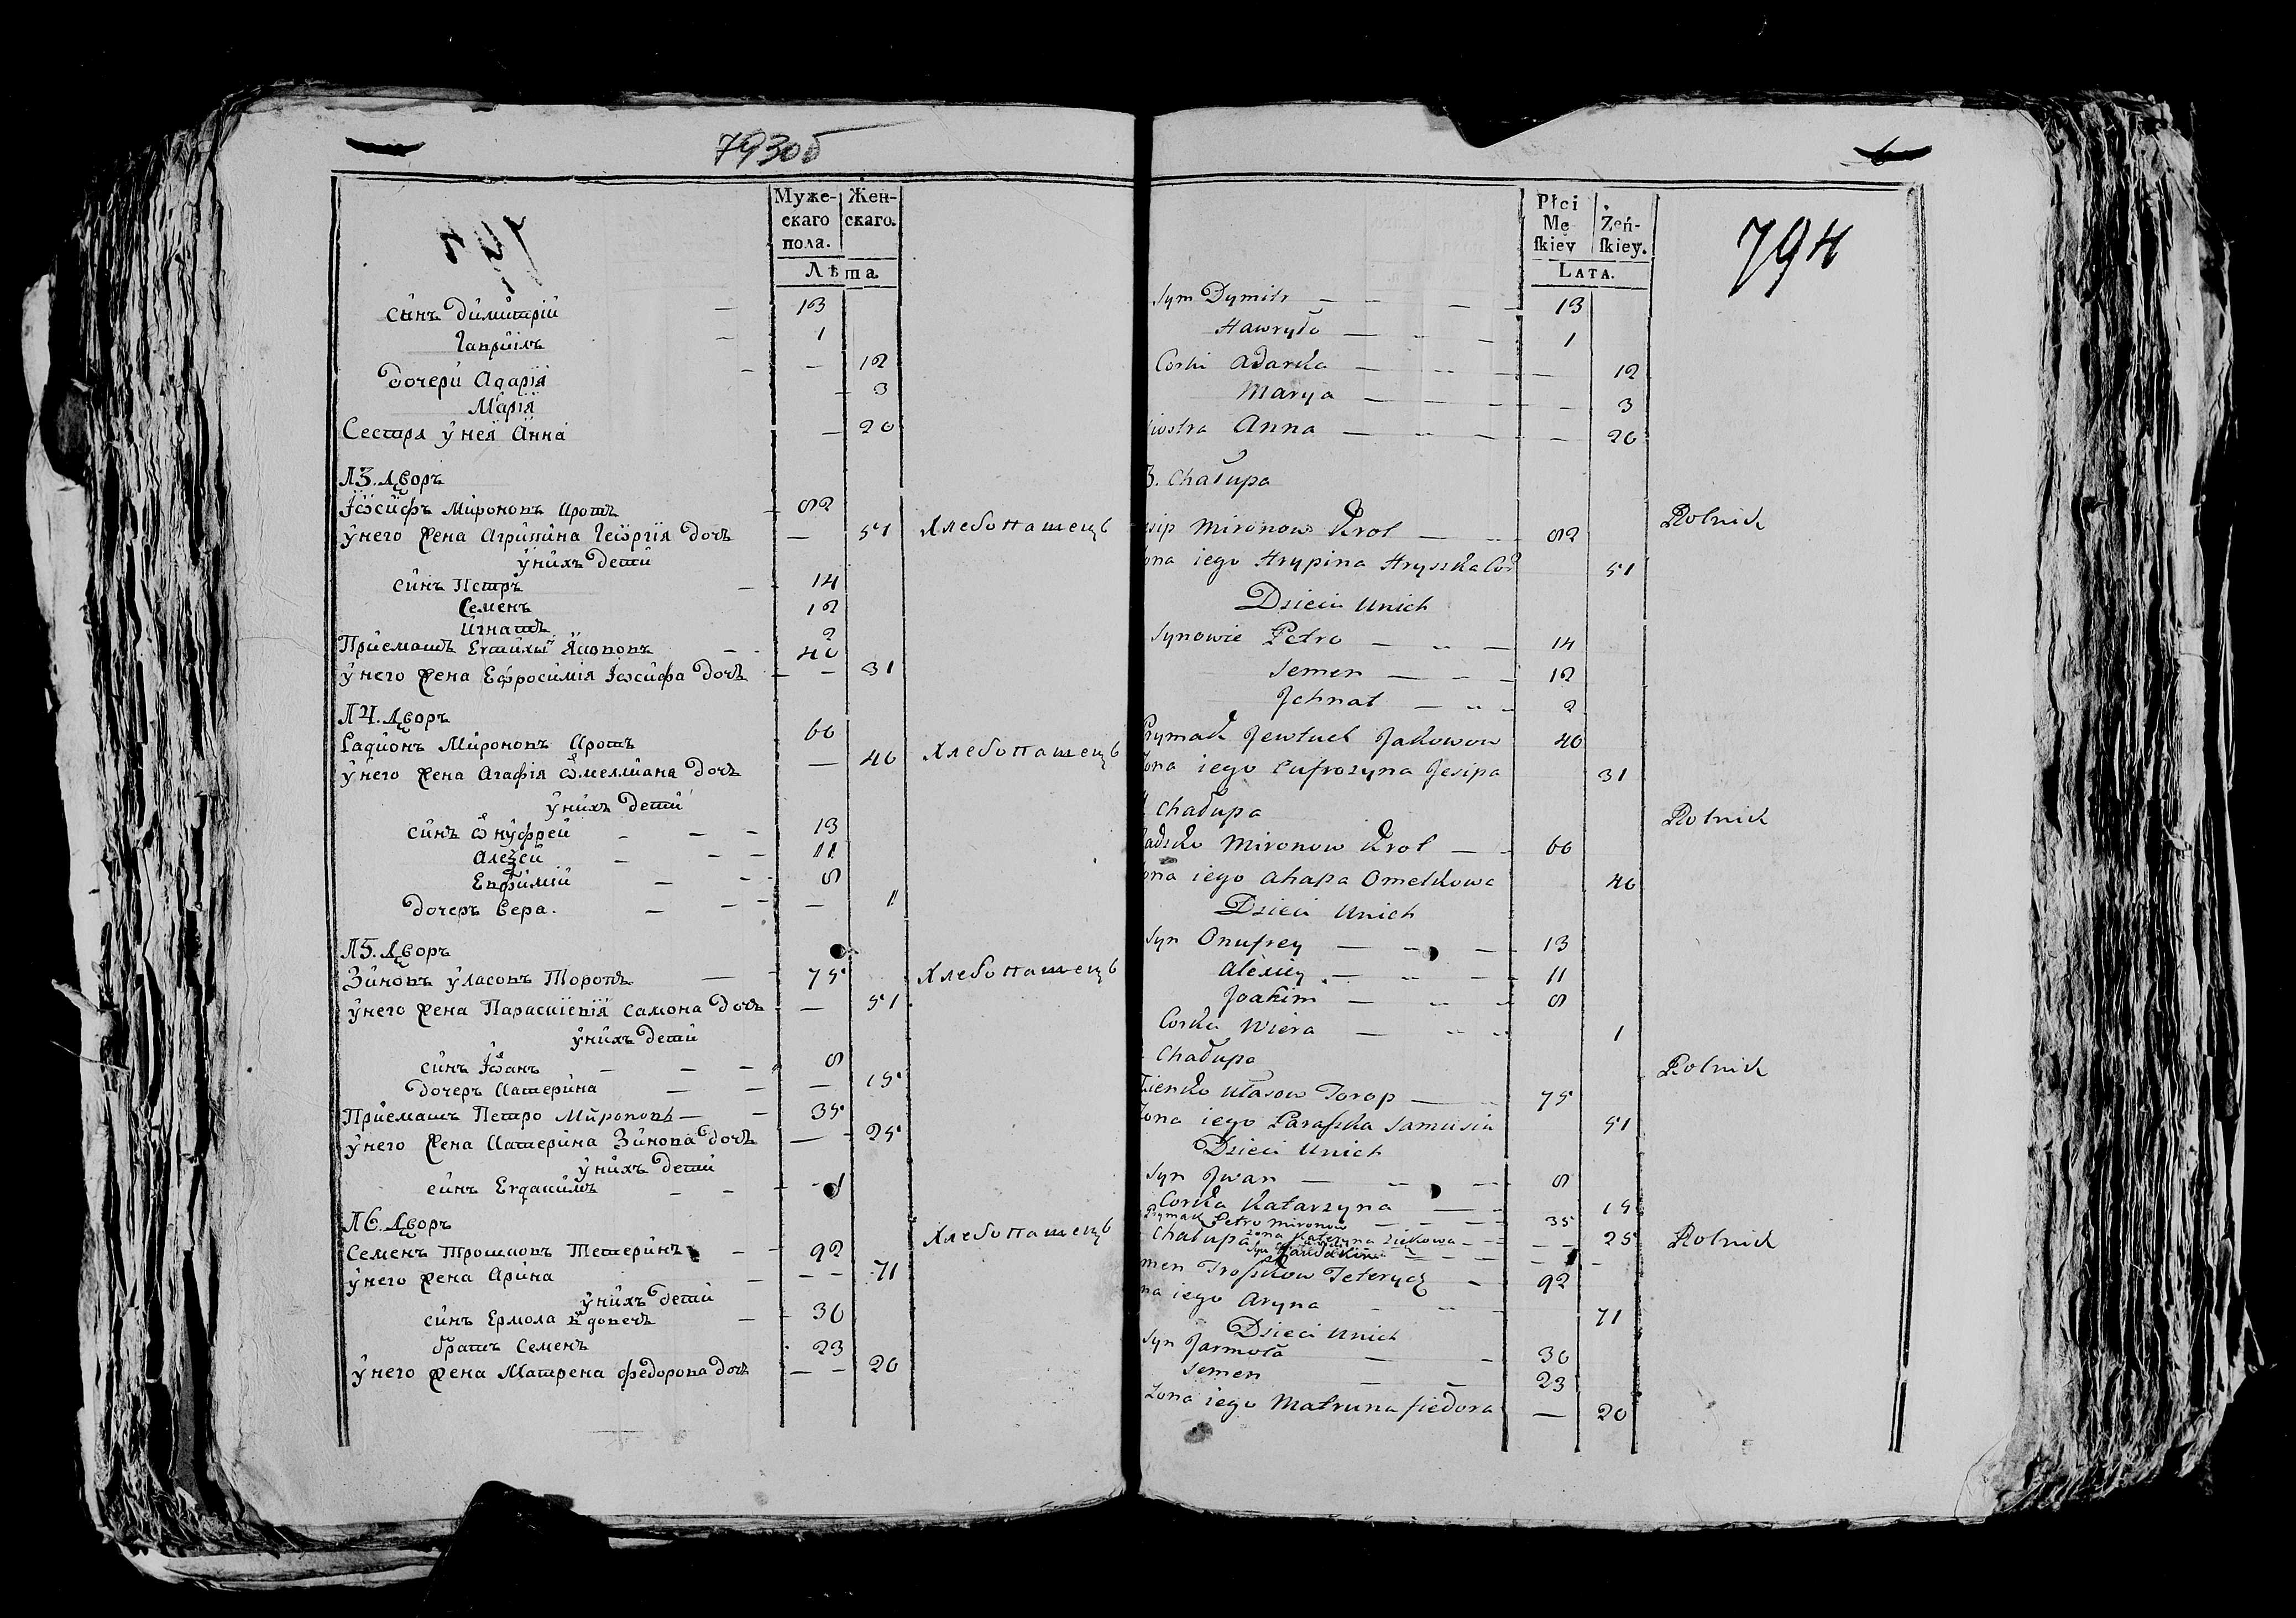 793об
Муже-
скаго
пола.
Жен-
скаго.
Лѣта
синъ Димитрій — 13
Гавріилъ — 1
дочери Адарія — 12
Марія — 3
Сестра у нея Анна — 20
Л3. Дворъ
Іосифъ Мироновъ Кротъ — 82
у него жена Агрипина Георгія дочъ — 51 Хлебопашецъ
у нихъ дети
синъ Петръ — 14
Семенъ 12
Игнатъ 2
Приематъ Евтихій Якововъ — 40
у него жена Ефросимія Іосифа дочъ — 31
Л4. Дворъ
Радионъ Мироновъ Кротъ 60
у него жена Агафія Омелияна дочъ — 40 Хлебопашецъ
у нихъ дети
синъ Онуфрей — 13
Алеѯей — 11
Евфимій — 8
дочеръ Вера. — 1
Л5. Дворъ
Зиновъ Уласовъ Торопъ — 75 Хлебопашецъ
у него жена Параскіевія Самона дочъ — 51
у нихъ дети
синъ Іоанъ — 8
дочеръ Катерина — 15
Приематъ Петро Мироновъ — 35
у него жена Катерина Зинова дочъ — 25
у нихъ дети
синъ Евдакимъ — 1
Л6. Дворъ Хлебопашецъ
Семенъ Трошковъ Тетеринъ — 92
у него жена Арина — 71
у нихъ дети
синъ Ермола вдовецъ — 30
братъ Семенъ 23
у него жена Матрена Федорова дочъ — 20
794
Płci
Mę
ſkiey
Żeń-
ſkiey.
LATA.
Syn Dymitr — 13
Hawryło — 1
Corki Adarka — 12
Marya — 3
iostra Anna — 20
3. Chałupa
sip Mironow Krot — 82 Rolnik
ona iego Hrypina Hryszka Cor 51
Dzieci Unich
Synowie Petro — 14
Semen — 12
Jchnat — 2
Prymak Jewtuch Jakowow 40
Zona iego Eufrozyna Jesipa 31
Chałupa Rolnik
adzko Mironow Krot — 60
ona iego Ahapa Omelkowa 40
Dzieci Unich
Syn Onufrey — 13
Alexiey — 11
Joakim — 8
Corka Wiera — 1
Chałupa Rolnik
Zienko Ułasow Torop — 75
Zona iego Paraſka Samusia 51
Dzieci Unich
Syn Jwan — 8
Corka Katarzyna — 15
Prymak Petro Mironow — 35
Chałupa Zona Kateryna Zickowa — 25 Rolnik
Syn Jawdakim — 1
men Troſzkow Teterycz — 92
na iego Aryna — 71
Dzieci Unich
Syn Jarmoła — 30
Semen — 23
Zona iego Matruna fiedora — 20